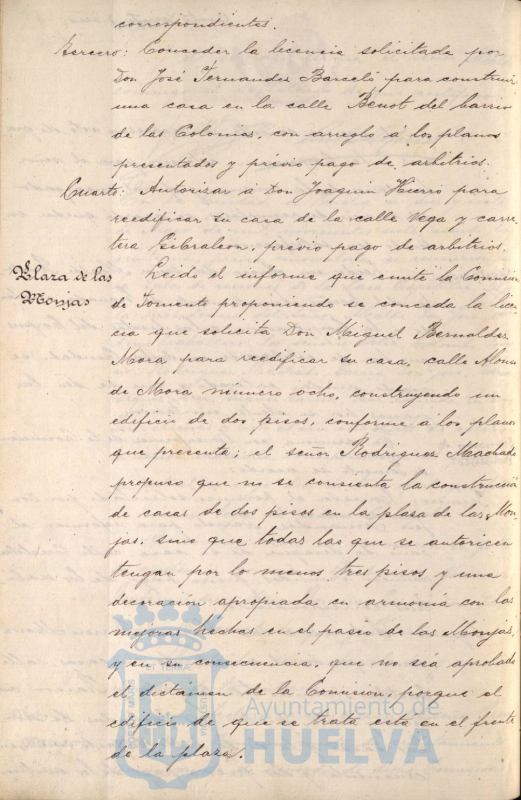 correspondientes.
Tercero: Conceder la licencia solicitada por
Don José Fernandez Barceló para construir
una casa en la calle Benot del barrio
de las Colonias, con arreglo á los planos
presentados y prévio pago de arbitrios.
Cuarto: Autorizar á Don Joaquin Hierro para
reedificar su casa de la calle Vega y carre
tera Gibraleon, prévio pago de arbitrios.
Plaza de las
Monjas
Leido el informe que emite la Comision
de Fomento proponiendo se conceda la licen
cia que solicita Don Miguel Bernaldez
Mora para reedificar su casa, calle Alonso
de Mora número ocho, construyendo un
edificio de dos pisos, conforme á los planos
que presenta; el señor Rodriguez Machado
propuso que no se consienta la construccion
de casas de dos pisos en la plaza de las Mon
jas, sino que todas las que se autoricen
tengan por lo menos tres pisos y una
decoración apropiada en armonía con las
mejoras hechas en el paseo de las Monjas,
y en su consecuencia, que no sea aprobado
el dictámen de la Comision, porque el
edificio de que se trata está en el frente
de la plaza.
Ayuntamiento de
HUELVA